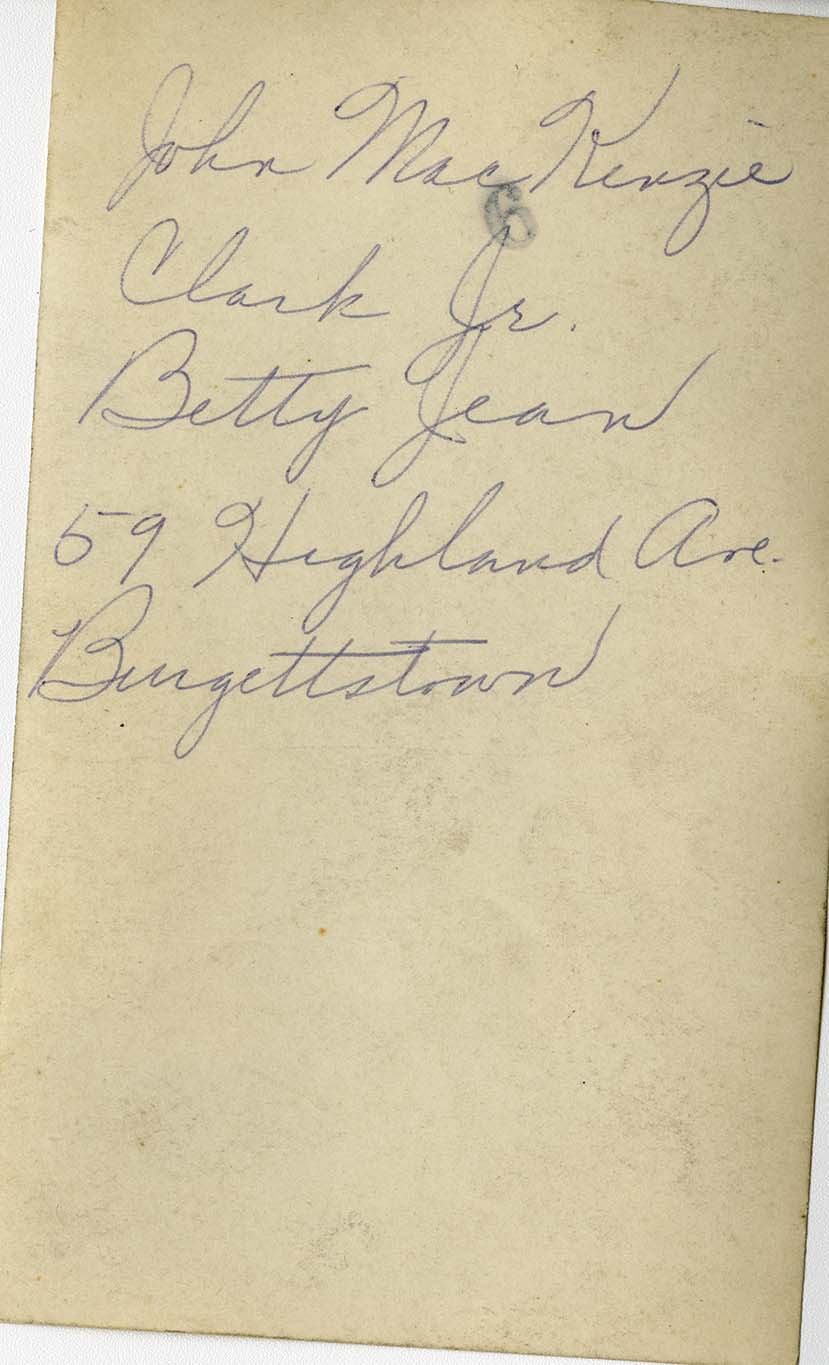 John MacKenzie
6
Clark Jr.
Betty Jean
59 Highland Ave.
Burgettstown